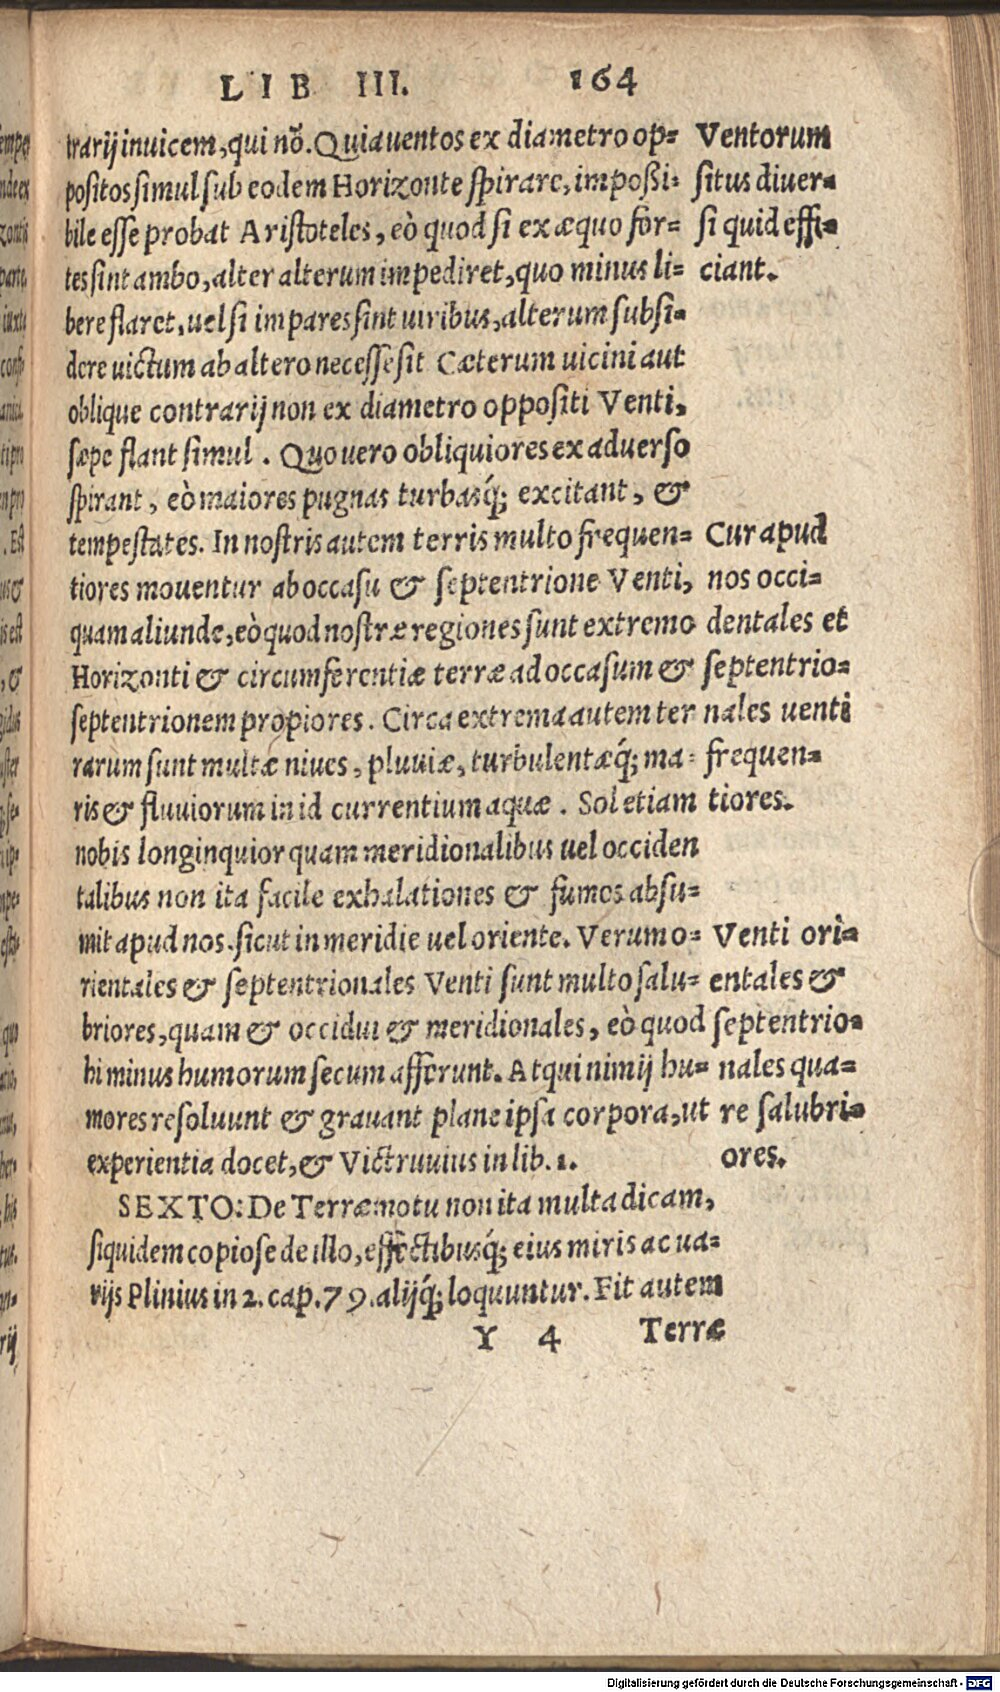 LIB III. 164
trarij inuicem, qui nõ. Quia uentos ex diametro op=
positos simul sub eodem Horizonte spirare, impoßi=
bile esse probat Aristoteles, eò quod si ex æquo for=
tes sint ambo, alter alterum impediret, quo minus li=
bere flaret, uel si impares sint uiribus, alterum subsi=
dere uictum ab altero necesse sit Cæterum uicini aut
oblique contrarij non ex diametro oppositi Venti,
sæpe flant simul. Quo uero obliquiores ex aduerso
spirant, eò maiores pugnas turbasq́; excitant, &
tempestates. In nostris autem terris multo frequen=
tiores mouentur ab occasu & septentrione Venti,
quam aliunde, eò quod nostræ regiones sunt extremo
Horizonti & circumferentiæ terræ ad occasum &
septentrionem propiores. Circa extrema autem ter
rarum sunt multæ niues, pluuiæ, turbulentæq́; ma=
ris & fluuiorum in id currentium aquæ. Sol etiam
nobis longinquior quam meridionalibus uel occiden
talibus non ita facile exhalationes & fumos absu=
mit apud nos. sicut in meridie uel oriente. Verum o=
rientales & septentrionales Venti sunt multo salu=
briores, quam & occidui & meridionales, eò quod
hi minus humorum secum afferunt. Atqui nimij hu=
mores resoluunt & grauant plane ipsa corpora, ut
experientia docet, & Victruuius in lib. 1.
SEXTO: De Terræmotu non ita multa dicam,
siquidem copiose de illo, effectibusq́; eius miris ac ua=
rijs Plinius in 2. cap. 79. alijq́; loquuntur. Fit autem
Y 4 Terræ
Ventorum
situs diuer=
si quid effi=
ciant.
Cur apud
nos occi=
dentales et
septentrio=
nales uenti
frequen=
tiores.
Venti ori=
entales &
septentrio=
nales qua=
re salubri=
ores.
Digitalisierung gefördert durch die Deutsche Forschungsgemeinschaft - DFG